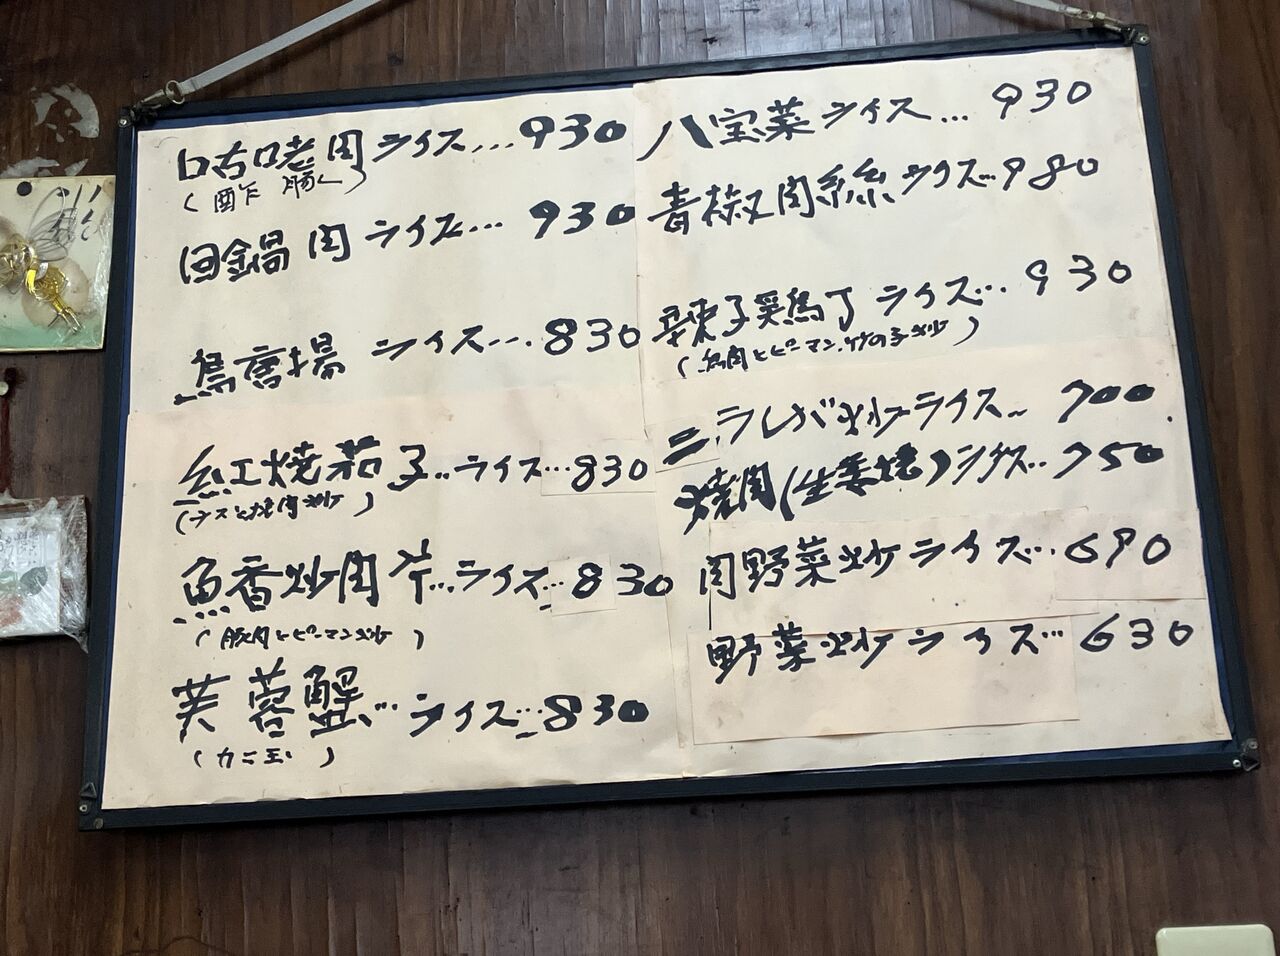 咕咾肉ライス...930
(酢豚)
回鍋肉ライス...930
ライス...830
紅焼茄子..ライス...830
(ナスと挽肉炒)
魚香炒肉片...ライス...830
(豚肉とピーマン炒)
芙蓉蟹...ライス...830
(カニ玉)
八宝菜ライス...930
青椒肉絲ライス...980
辣子鶏丁ライス...930
(鳥肉とピーマン、竹の子炒)
ニラレバ炒ライス..700
焼肉(生姜焼)ライス..750
肉野菜炒ライス...690
野菜炒ライス...630